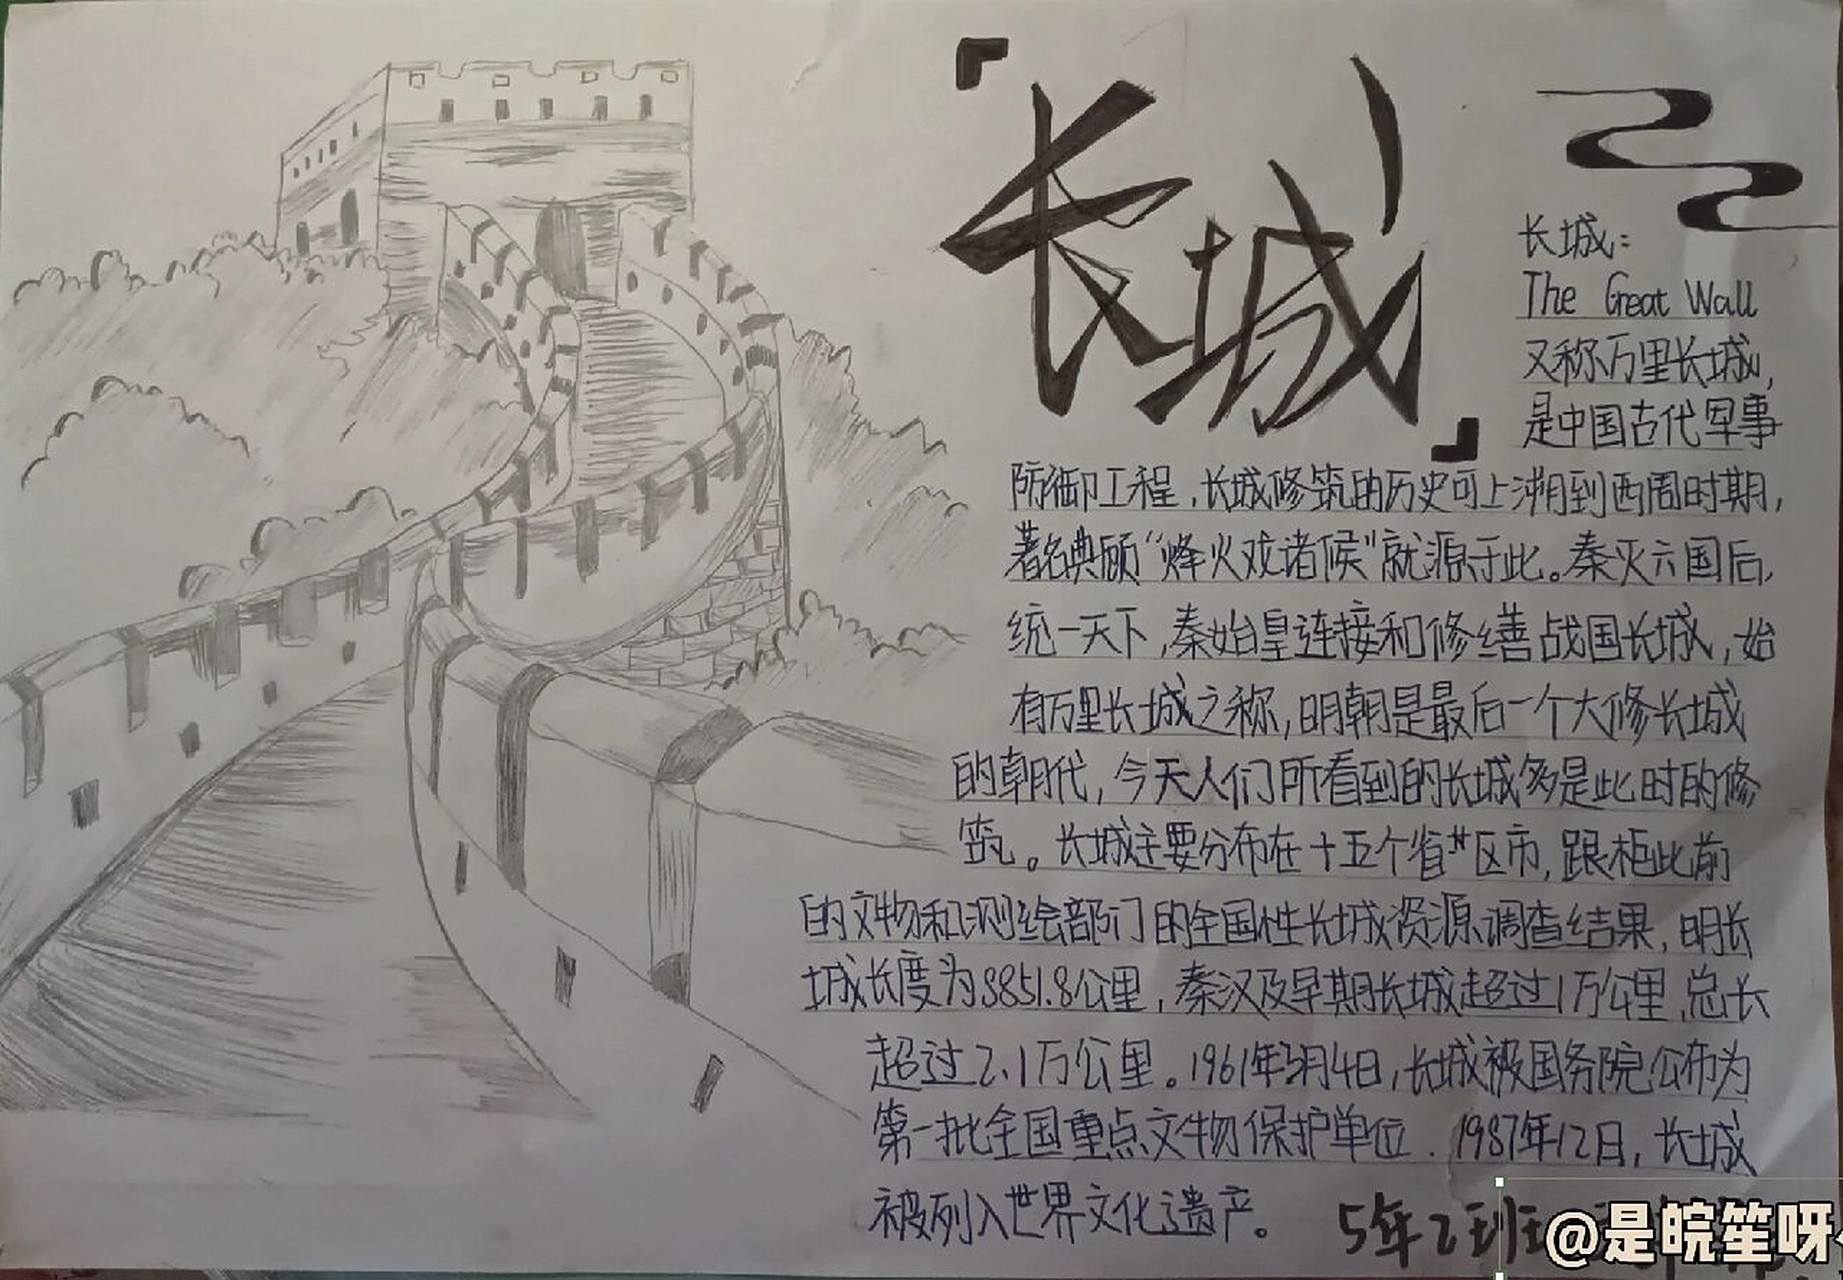 「长城」
长城：
The Great Wall
又称万里长城,
是中国古代军事
防御工程,长城修筑的历史可上溯到西周时期,
著名典顾“烽火戏诸候”就源于此。秦灭六国后,
统一天下,秦始皇连接和修缮战国长城,始
有万里长城之称,明朝是最后一个大修长城
的朝代,今天人们所看到的长城多是此时的修
筑。长城主要分布在十五个省区市,跟柜此前
的文物和测绘部门的全国性长城资源调查结果,明长
城长度为8851.8公里,秦汉及早期长城超过1万公里,总长
超过2.1万公里。1961年3月4日,长城被国务院公布为
第一批全国重点文物保护单位.1987年12日,长城
被列入世界文化遗产。
5年2班
@是皖笙呀